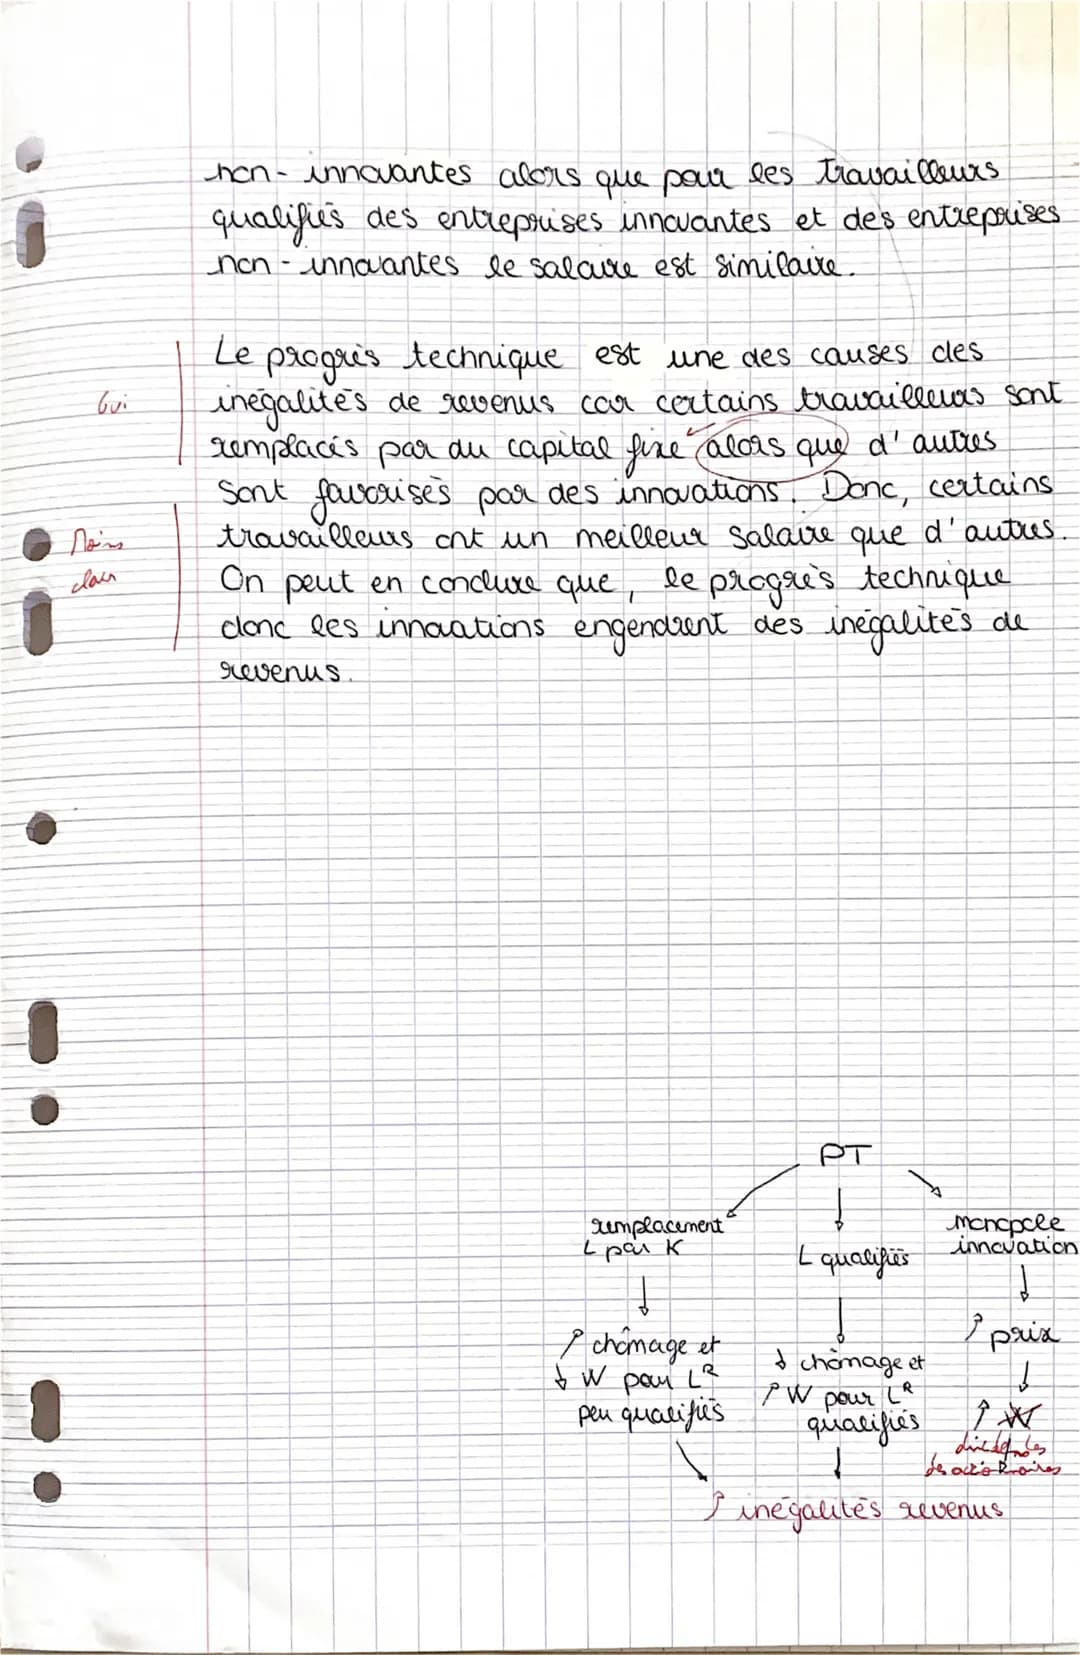 non-innovantes alors que pour les travailleurs
qualifiés des entreprises innovantes et des entreprises
non-innovantes le salaire est similaire.
Le progrès technique est une des causes des
inégalités de revenus car certains travailleurs sont
Oui
remplacés par du capital fixe alors que d'autres
sont favorisés par des innovations. Donc, certains
travailleurs ont un meilleur salaire que d'autres.
Moins
clair
On peut en conclure que, le progrès technique
donc les innovations engendrent des inégalités de
revenus.
PT
remplacement
L par K
↓
↑ chômage et
↓ W pour L^R
peu qualifiés
↓
L qualifiés
↓
↓ chômage et
↑ W pour L^R
qualifiés
↓
monopole
innovation
↓
↑ prix
↓
↑ W
des actionnaires
↑ inégalités revenus